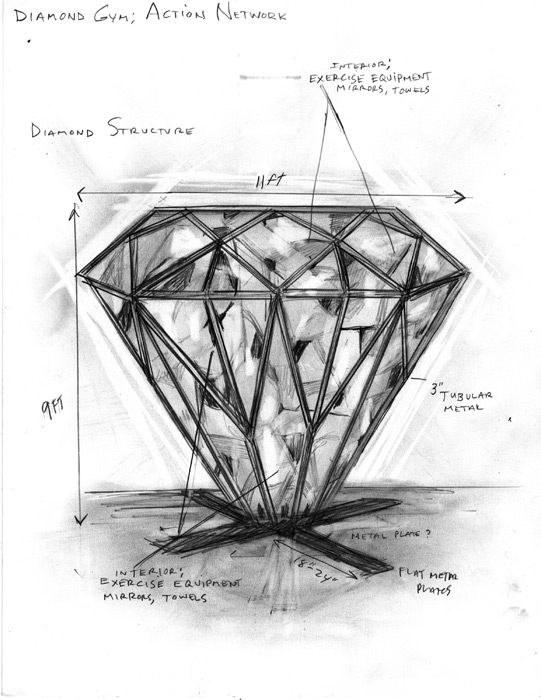 DIAMOND GYM; ACTION NETWORK
INTERIOR;
EXERCISE EQUIPMENT
MIRRORS, TOWELS
DIAMOND STRUCTURE
11ft
9FT
3" TUBULAR
METAL
METAL PLATE?
18"-24"
FLAT METAL
PLATES
INTERIOR;
EXERCISE EQUIPMENT
MIRRORS, TOWELS